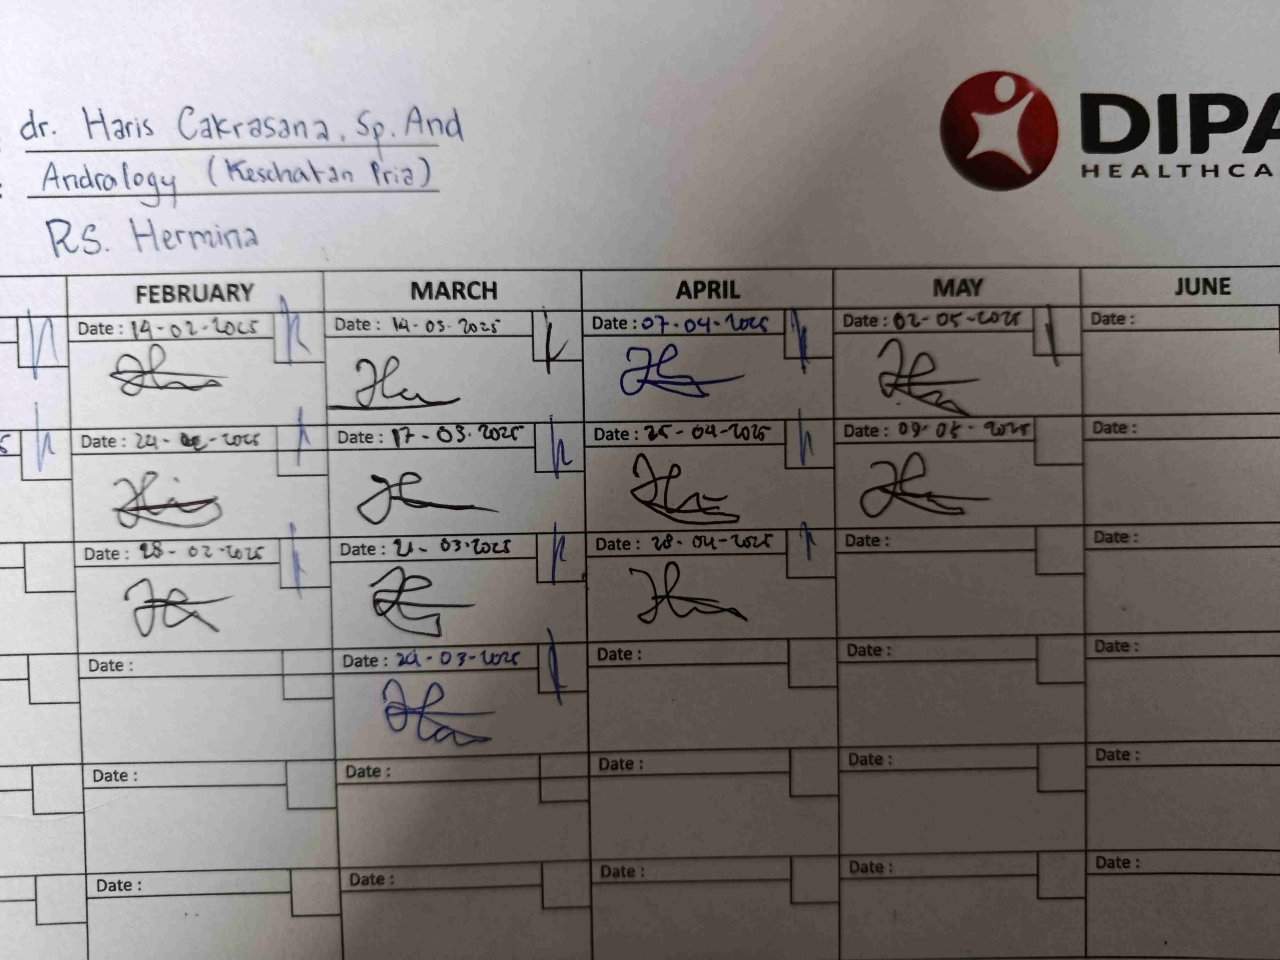 dr. Haris Cakrasana, Sp. And
Andralogy (Keschatan Pria)
RS. Hermina
DIPA
HEALTHCA
FEBRUARY MARCH APRIL MAY JUNE
Date : 14-02-2025 Date : 14-03-2025 Date : 07-04-2025 Date : 02-05-2025 Date :
Date : 24-02-2025 Date : 17-03-2025 Date : 25-04-2025 Date : 09-05-2025 Date :
Date : 28-02-2025 Date : 21-03-2025 Date : 28-04-2025 Date : Date :
Date : Date : 24-03-2025 Date : Date : Date :
Date : Date : Date : Date : Date :
Date : Date : Date : Date : Date :